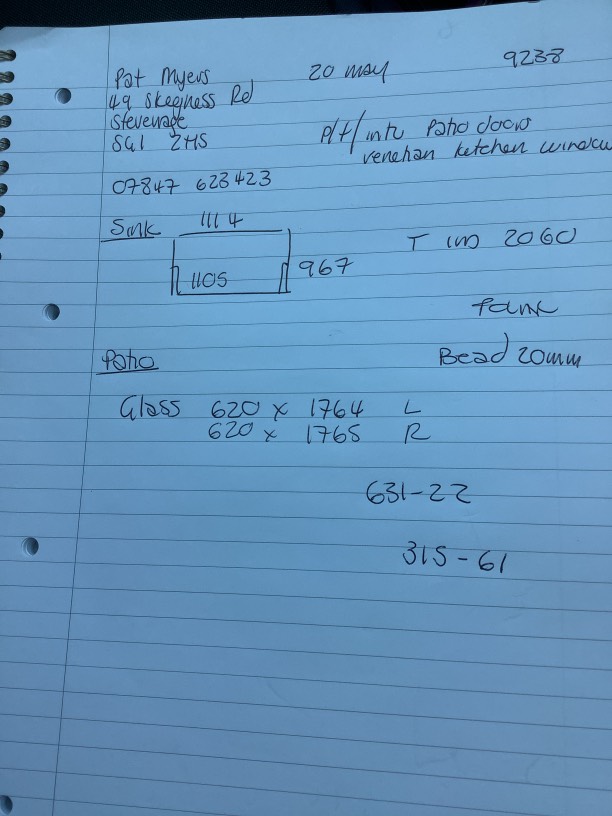 Pat Myers 20 may 9238
49 Skegness Rd
Stevenage
SG1 2HS
P/f/intu Patio doors
venetian kitchen window
07847 623423
Sink 1114
T im 2060
967
1105
Patio
Bead 20mm
Glass 620 x 1764 L
620 x 1765 R
631-22
315-61